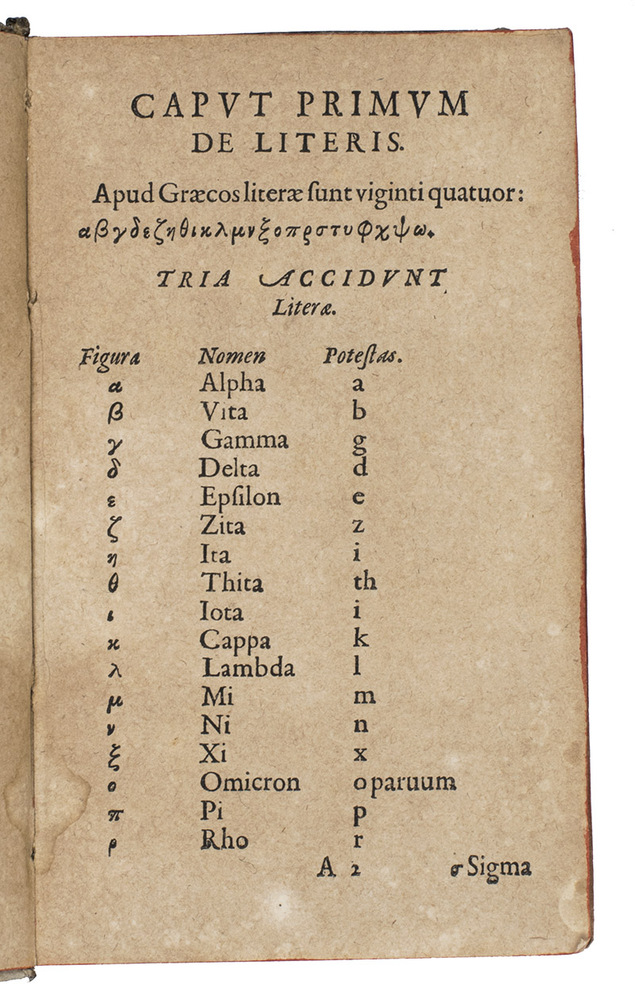 CAPVT PRIMVM
DE LITERIS.
Apud Græcos literæ ſunt viginti quatuor:
αβγδεζηθικλμνξοπρστυφχψω.
TRIA ACCIDVNT
Literæ.
Figura Nomen Poteſtas.
α Alpha a
β Vita b
γ Gamma g
δ Delta d
ε Epſilon e
ζ Zita z
η Ita i
θ Thita th
ι Iota i
κ Cappa k
λ Lambda l
μ Mi m
ν Ni n
ξ Xi x
ο Omicron o paruum
π Pi p
ρ Rho r
A 2 σ Sigma